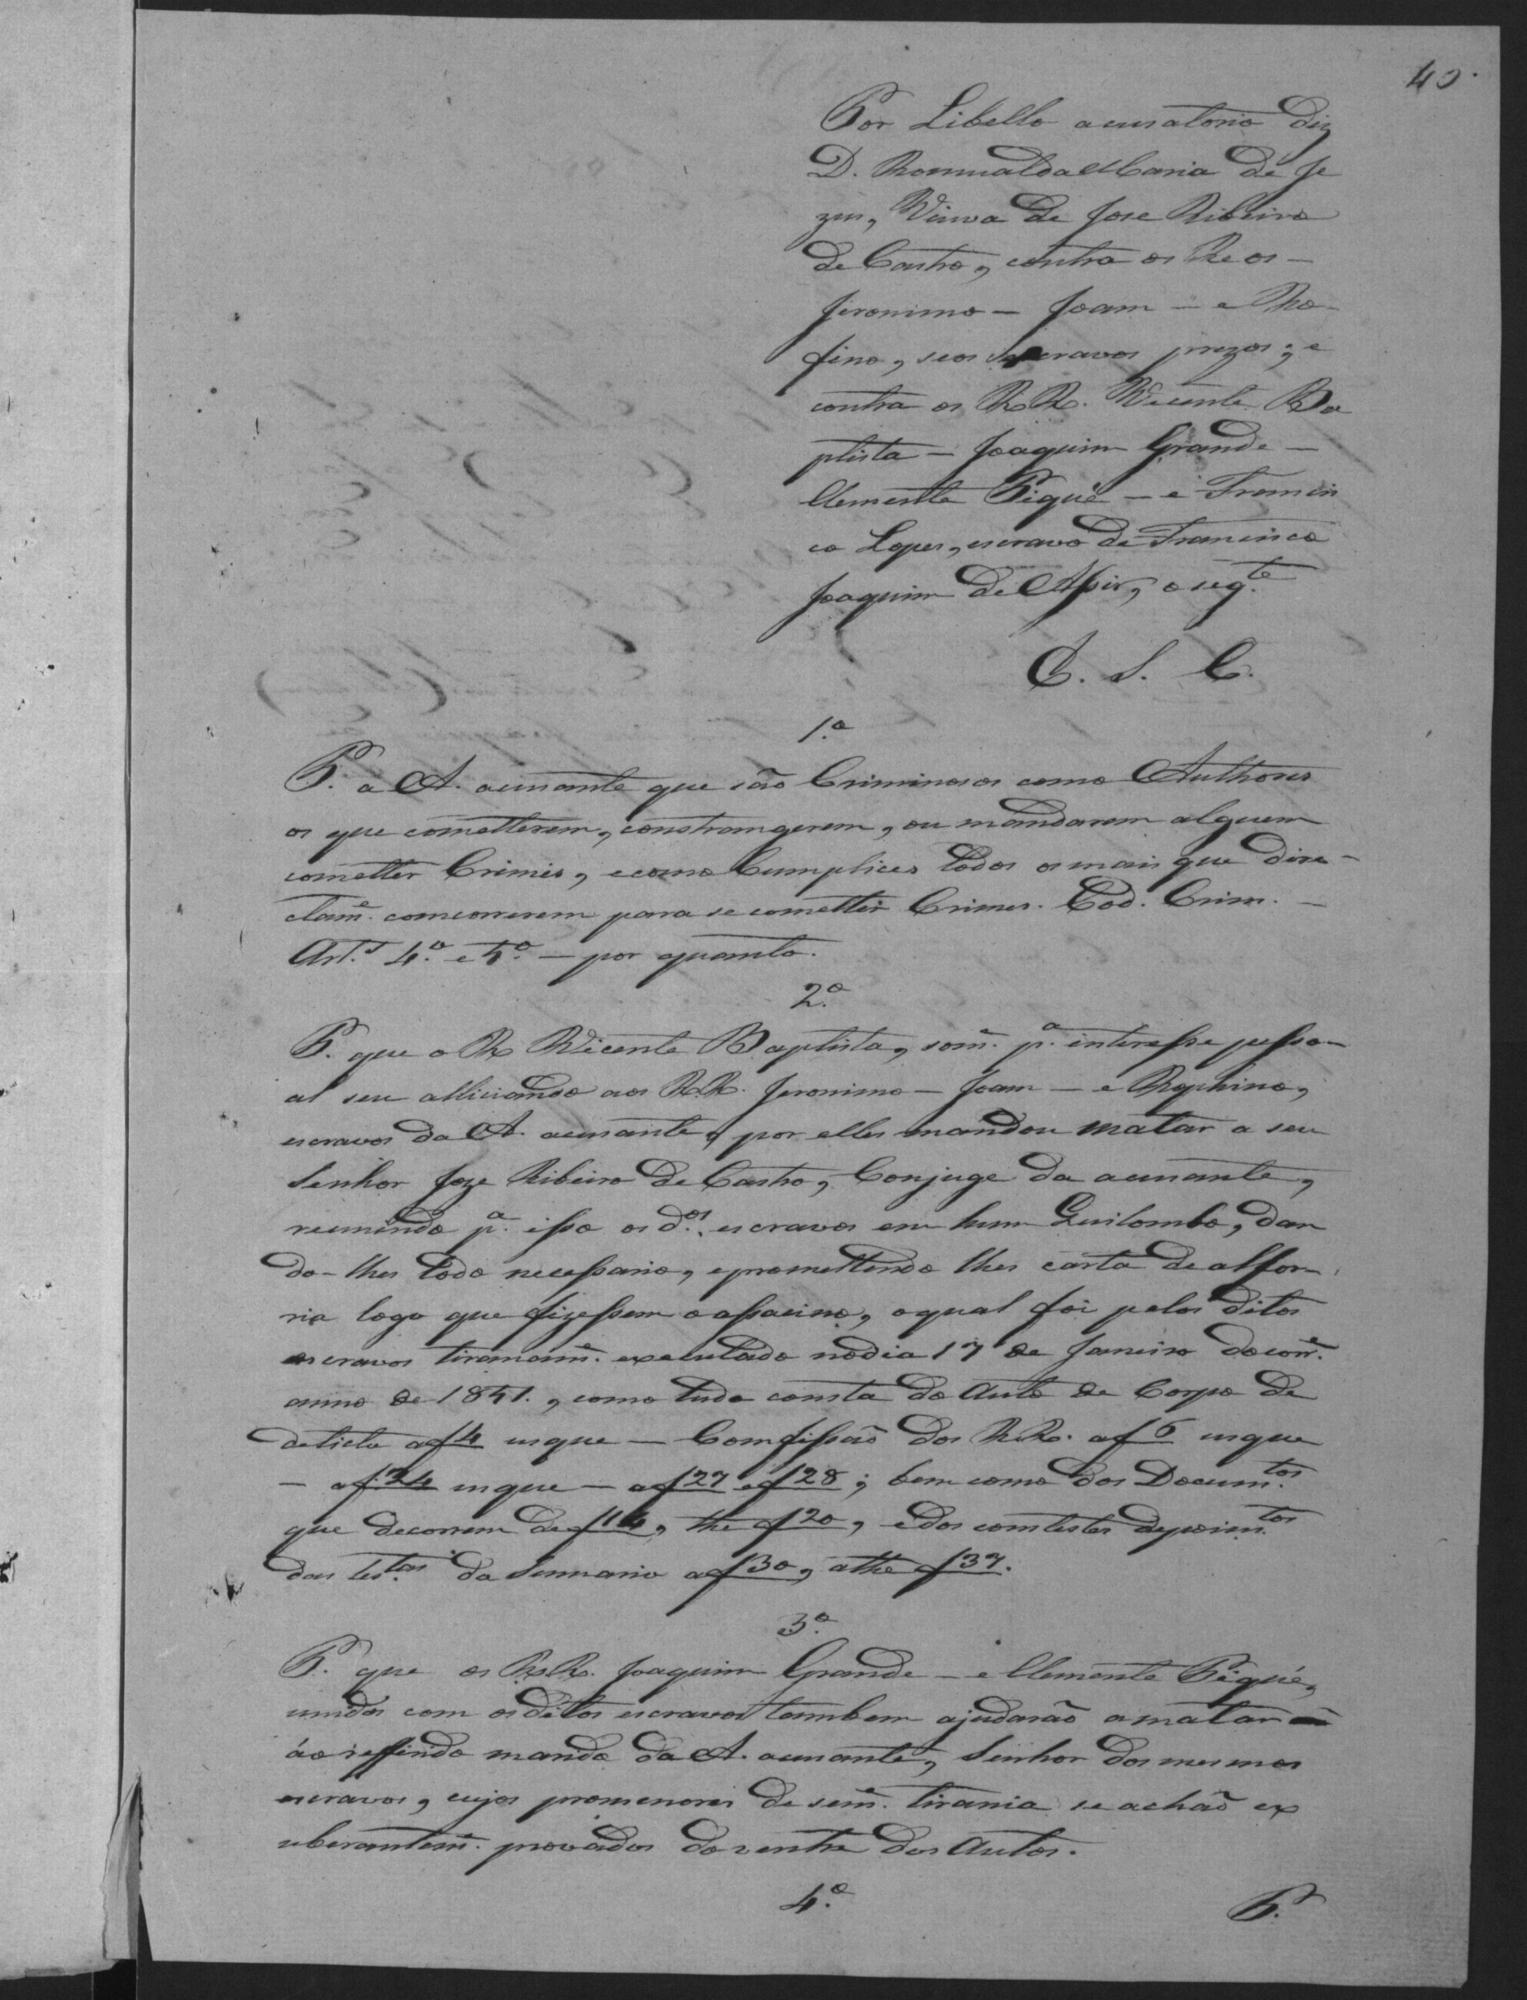 40.
Por Libello acusatorio diz
D. Romualda Maria de Je
zus, Viuva de Jose Ribeiro
de Castro, contra os Reos -
Jeronimo - Joam - e Ro-
fino, seos escravos prezos; e
contra os RR. Vicente Ba
ptista - Joaquim Grande -
Clemente Piqué - e Francis
co Lopes, escravo de Francisco
Joaquim de Assis, o seg.te
E. S. C.
1.º
P. a A. acusante que são Criminosos como Authores
os que cometterem, constrangerem, ou mandarem alguem
cometter Crimes, e como Cumplices todos os mais que dire-
ctam.e concorrerem para se cometter Crimes. Cod. Crim. -
Art.s 4.º e 5.º - por quanto.
2.º
P. que o R Vicente Baptista, som.e p.a interesse pesso-
al seu alliciando aos RR. Jeronimo - Joam - e Rophino,
escravos da A. acusante, por elles mandou matar a seu
Senhor Joze Ribeiro de Castro, Conjuge da acusante,
reunindo p.a isso os d.os escravos em hum Quilombo, dan
do-lhes todo necessario, e promettendo lhes carta de alfor-
ria logo que fizessem o assacino, o qual foi pelos ditos
escravos tiranam.e executado no dia 17 de Janeiro do corr.e
anno de 1851., como tudo consta do Auto de Corpo de
delicto a f 4 usque - Comfissão dos RR. a f 6 usque
- a f 24 usque - a f 27 e f 28; bem como dos Docum.tos
que decorrem de f 14, the f 20, e dos contestes depoim.tos
das tes.tas da Sumario a f 30, athe f 37.
3.º
P. que os RR. Joaquim Grande - e Clemente Piqué,
unidos com os ditos escravos tambem ajudarão a matar
áo reffirido marido da A. acusante, Senhor dos mesmos
escravos, cujos promenores de sem.e tirania se achão ex
uberantem.e provados do ventre dos Autos.
4.º
P.